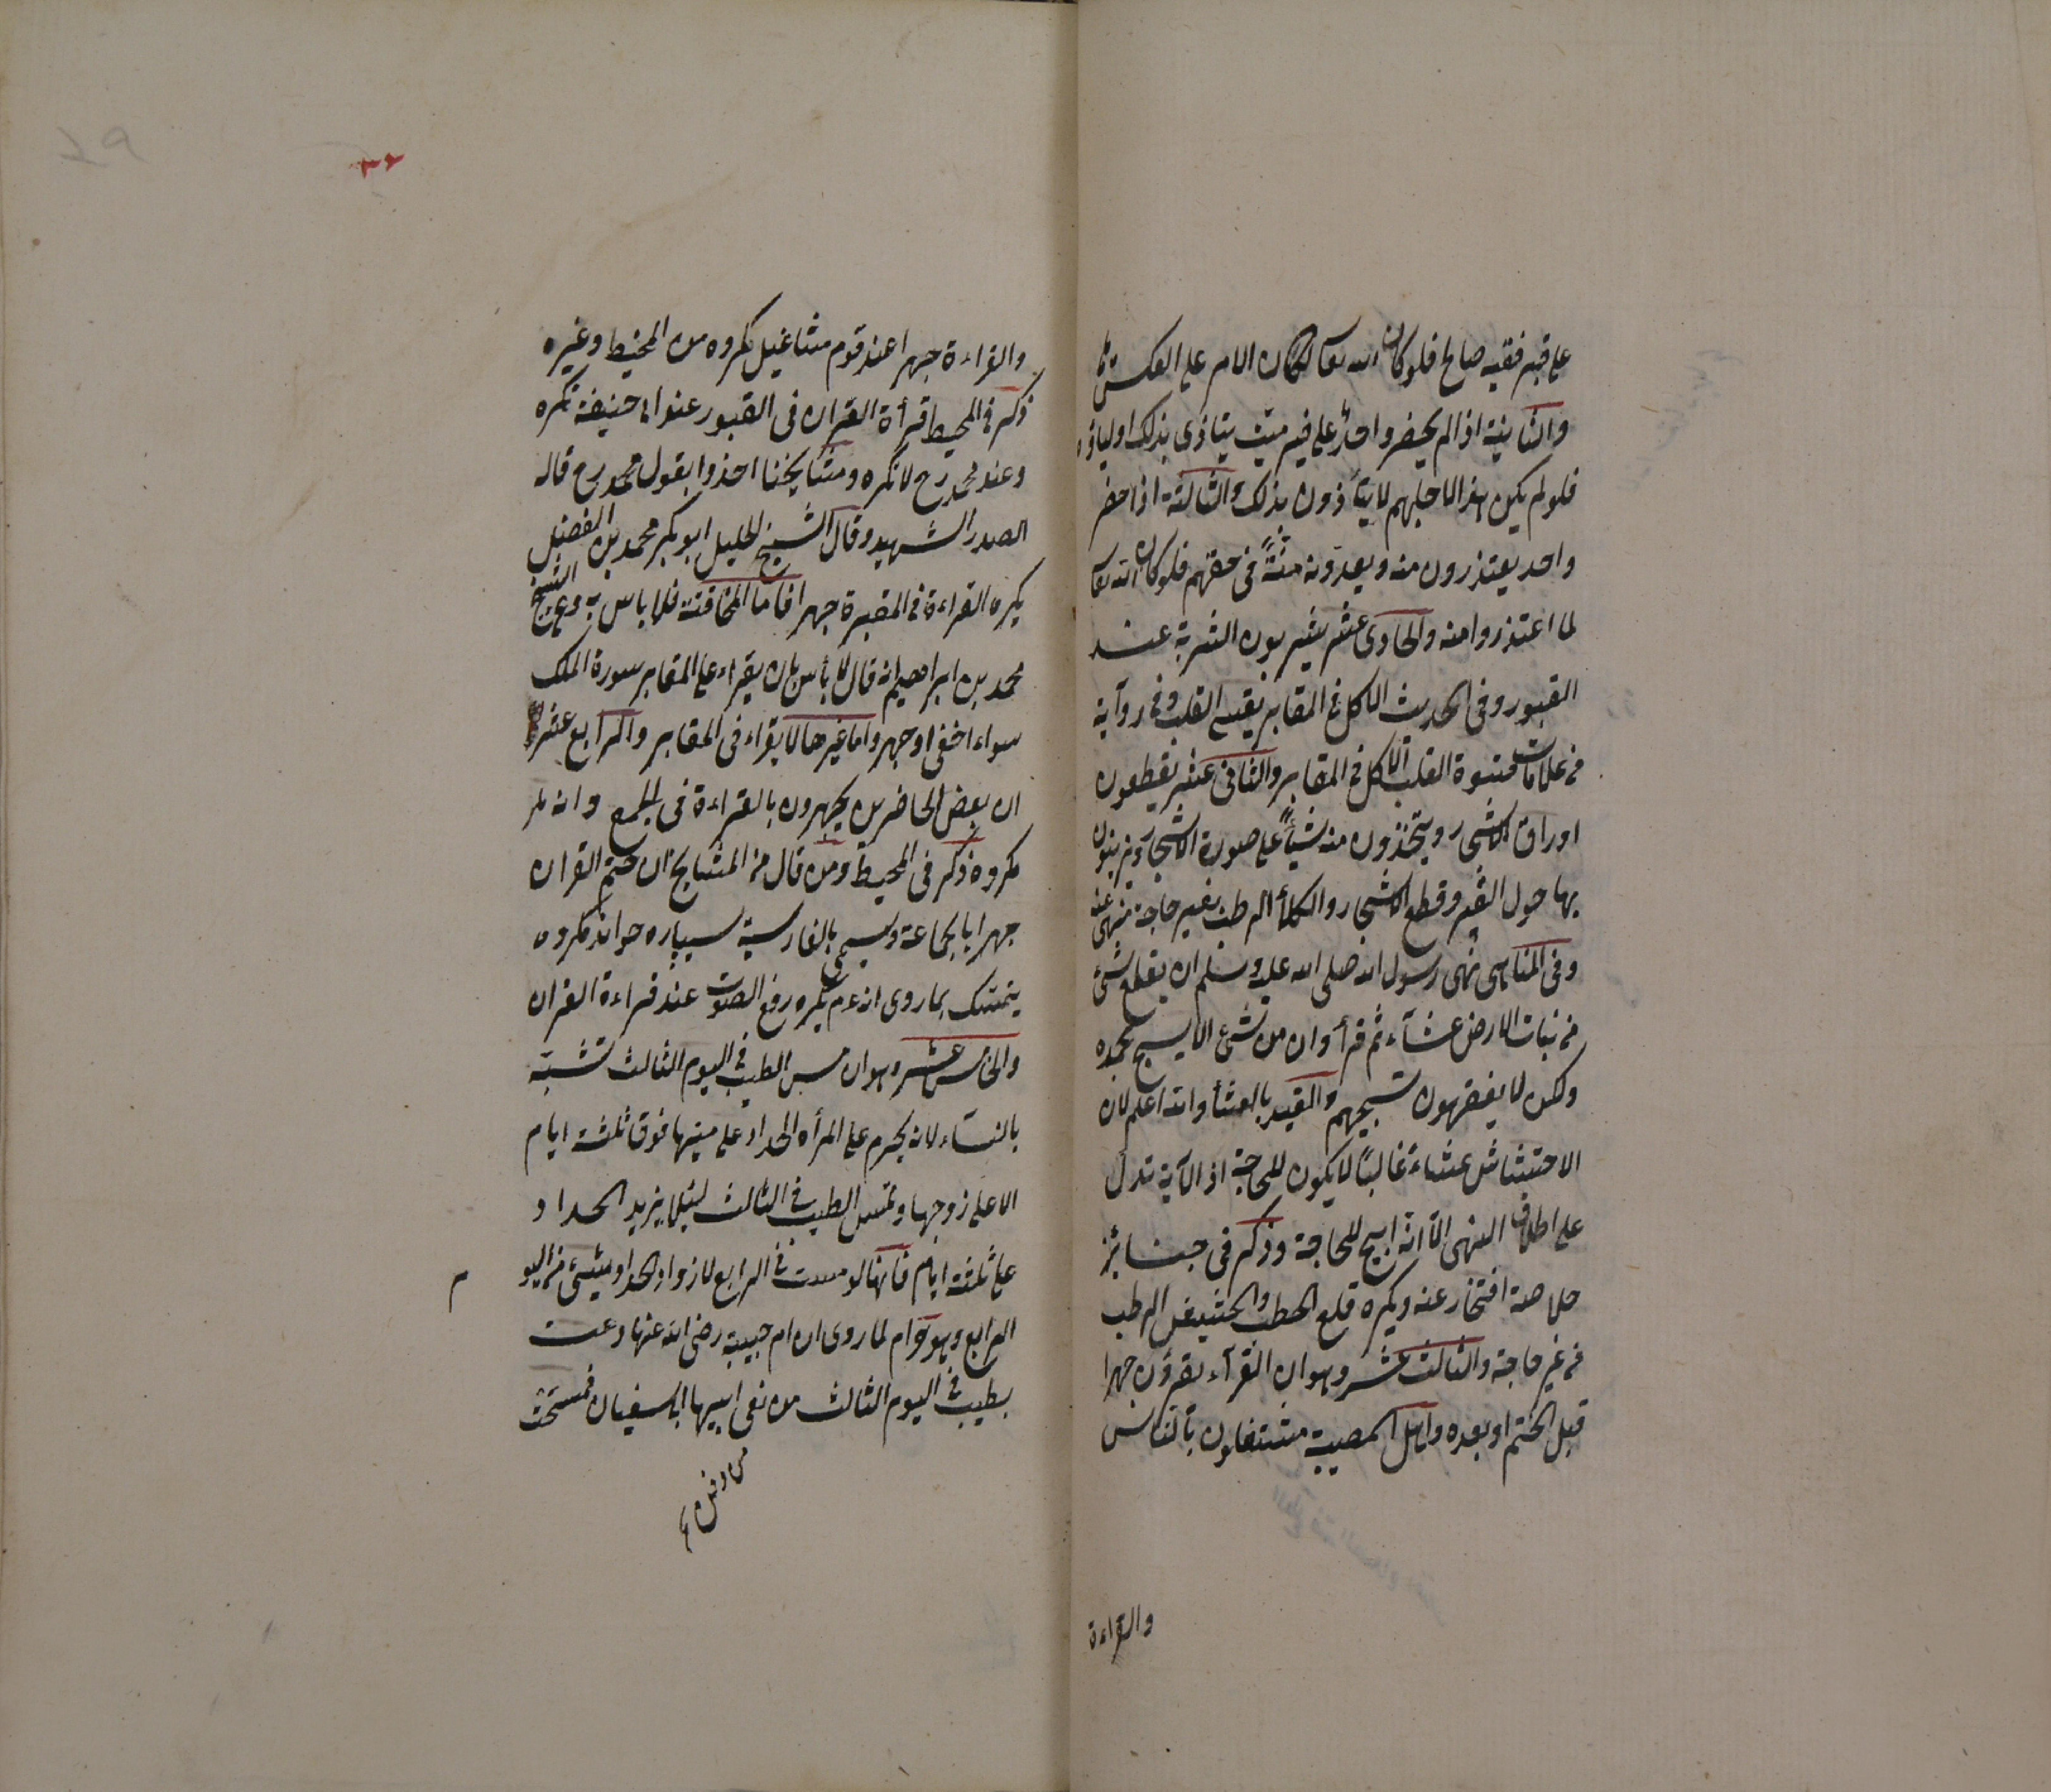 على قبر فقيه صالح فلو كان لله تعالى لكان الامر على العكس
والثانية اذا لم يحضر واحد على خير ميت يتاذى بذلك اولياؤه
فلو لم يكن هذا لاجلهم لا يتأذون بذلك والثالثة اذا حضر
واحد يعتذرون منه ويعدونه منة في حقهم فلو كان لله تعا
لما اعتذروا منه والحادى عشر يشربون الشربة عند
القبور وفى الحديث الاكل في المقابر يقسى القلب وفي رواية
من علامات قسوة القلب الاكل في المقابر والثانى عشر يقطعون
اوراق الاشجار ويتخذون منه شيأ على صورة الاشجار ويزينون
بها حول القبر وقطع الاشجار والكلأ الرطب بغير حاجة منهى عنه
وفى المناهى نهى رسول الله صلى الله عليه وسلم ان يقلع شئ
من نبات الارض عشآء ثم قرأ وان من شئ الا يسبح بحمده
ولكن لا يفقهون تسبيحهم والقيد بالعشأ والله اعلم لان
الاحتشاش عشاء غالبا لا يكون للحاجة اذ الآية تدل
على اطلاق النهى الا انه ابيح للحاجة وذكر فى جنائز
خلاصة افتخار عنه ويكره قلع الحطب والحشيش الرطب
من غير حاجة والثالث عشر وهو ان القرآء يقرؤن جهرا
قبل الختم او بعده واهل المصيبة مشتغلون بالناس
والقراءة
٣٢
والقراءة جهرا عند قوم مشاغيل مكروه من المحيط وغيره
ذكر في المحيط قرأة القران فى القبور عند ابى حنيفة تكره
وعند محمد رح لا تكره ومشايخنا اخذوا بقول محمد رح قاله
الصدر الشهيد وقال الشيخ الجليل ابو بكر محمد بن الفضيل
يكره القراءة في المقبرة جهرا فاما المخافتة فلا باس به وعن الشيخ
محمد بن ابراهيم انه قال لا بأس بان يقراء على المقابر سورة الملك
سواء اخفى او جهر واما غيرها لا يقراء فى المقابر والرابع عشر
ان بعض الحاضرين يجهرون بالقراءة فى الجمع وانه
مكروه ذكر فى المحيط ومن قال من المشايخ ان ختم القران
جهرا بالجماعة ويسمى بالفارسية سيپاره خواند مكروه
يتمسك بما روى انه عم يكره رفع الصوت عند قراءة القران
والخامس عشر وهو ان مس الطيب فى اليوم الثالث تشبه
بالنسآء لانه يحرم على المرأه الحداد على ميتها فوق ثلثة ايام
الا على زوجها وتمس الطيب فى الثالث ليلا يزيد الحداد
على ثلثة ايام فانها لو مست فى الرابع لازداد الحداد بشئ من اليو م
الرابع وهو حرام لما روى ان ام حبيبة رضى الله عنها دعت
بطيب في اليوم الثالث من نعى ابيها ابى سفيان فمسحت